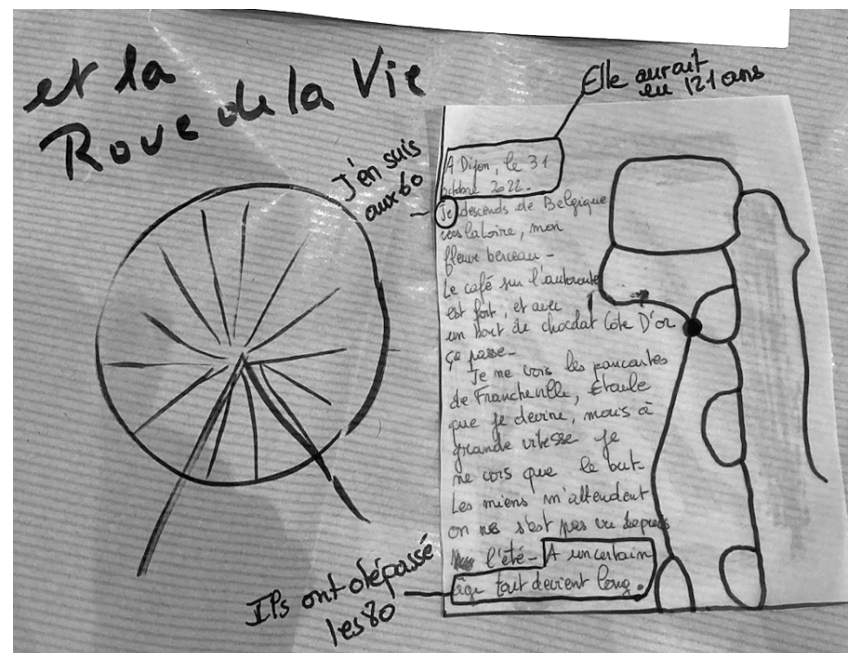 et la
Roue de la Vie
Elle aurait
eu 121 ans
J'en suis
aux 60
A Dijon, le 31
octobre 2022.
Je descends de Belgique
vers la Loire, mon
fleuve berceau -
Le café sur l'autoroute
est fort, et avec
un bout de chocolat Côte D'or
ça passe -
Je ne vois les pancartes
de Francheville, Etaule
que je devine, mais à
grande vitesse je
ne vois que le but -
Les miens m'attendent
on ne s'est pas vu depuis
l'été - A un certain
âge tout devient long.
Ils ont dépassé
les 80